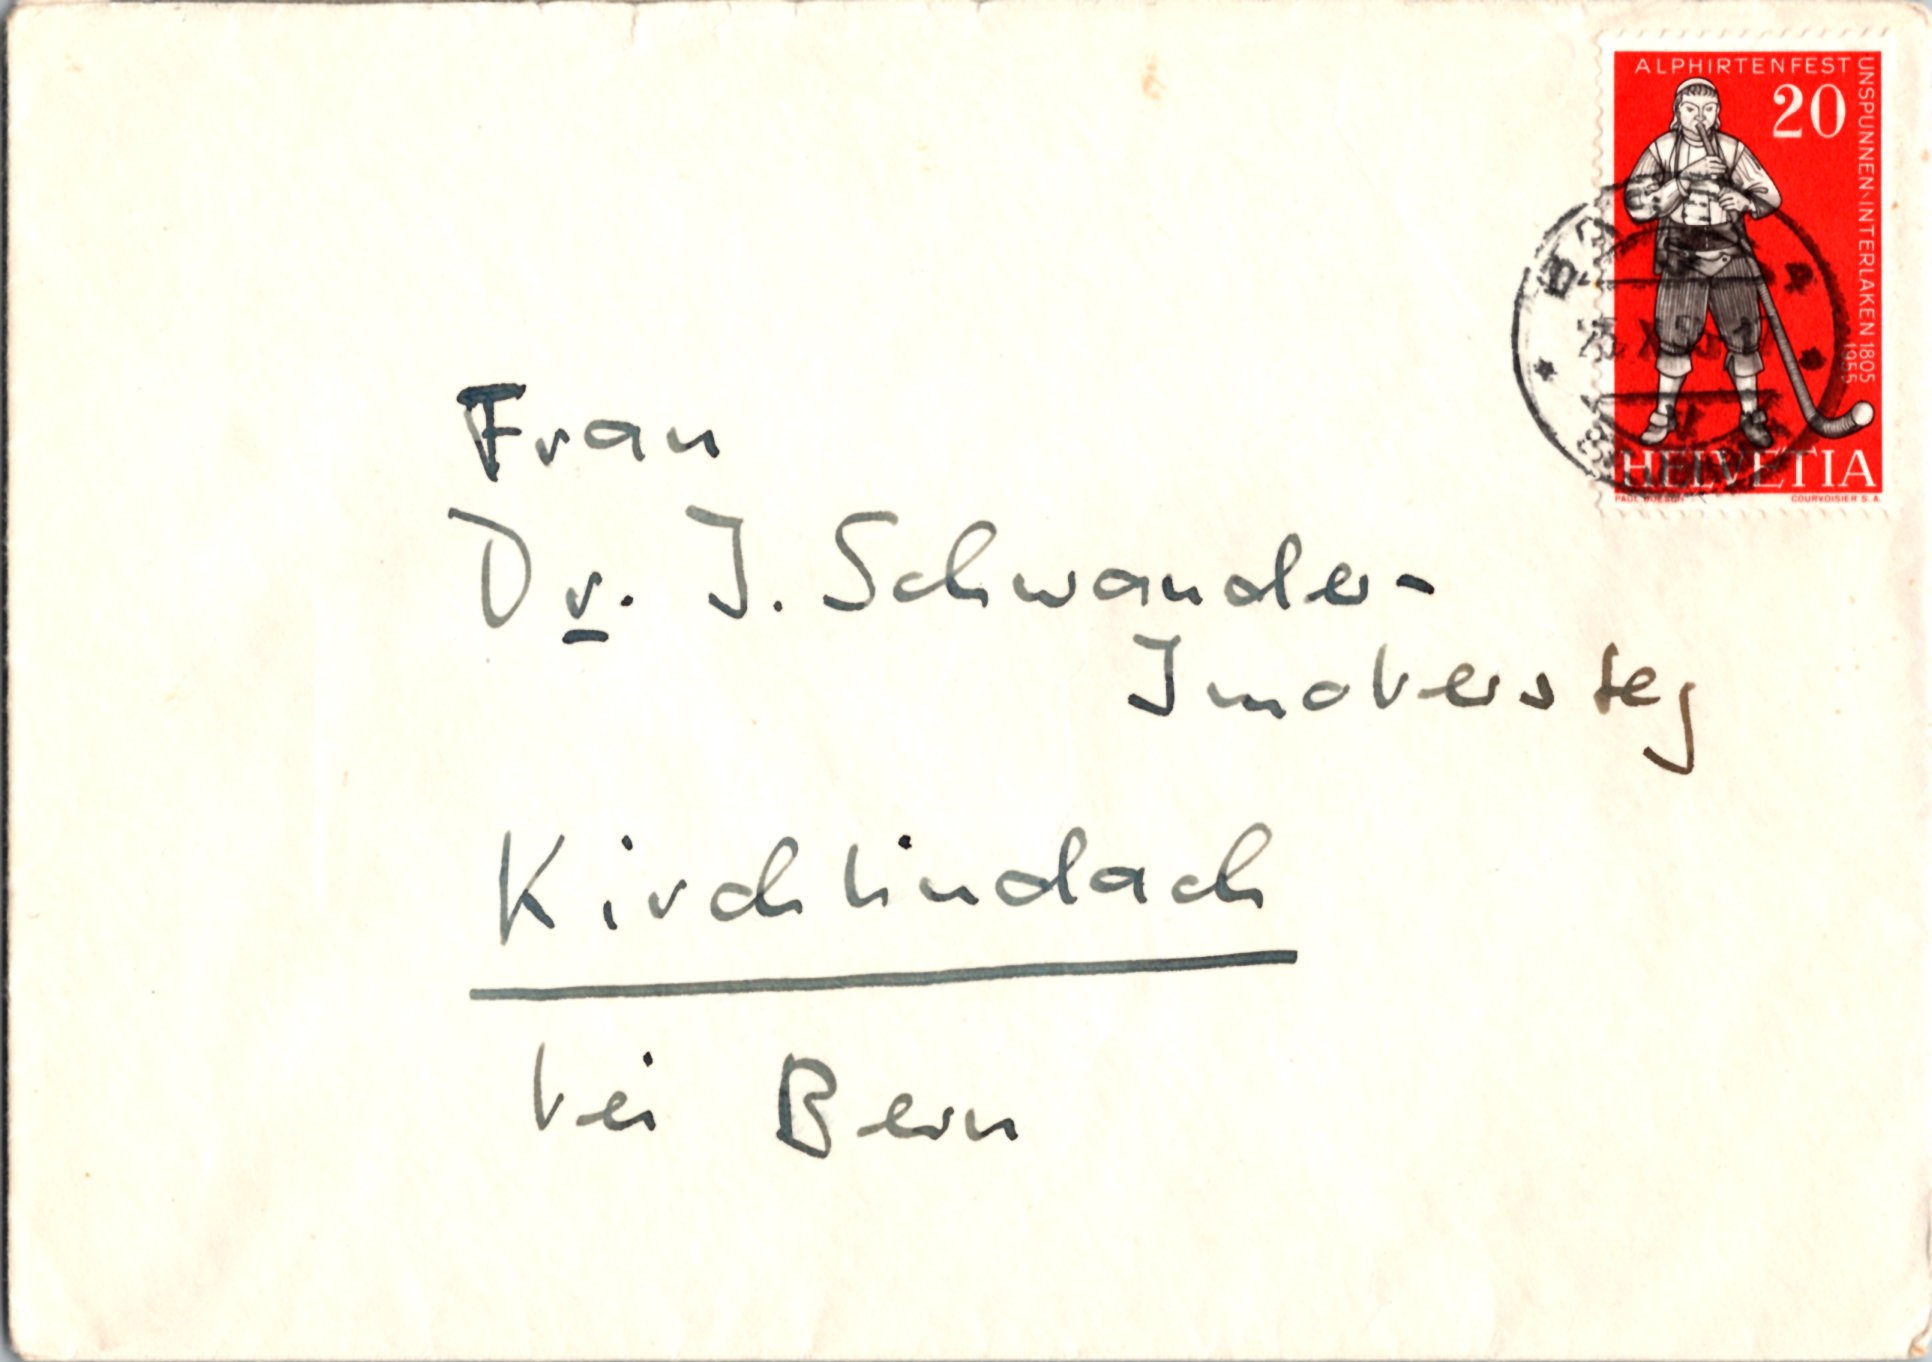 ALPHIRTENFEST
UNSPUNNEN-INTERLAKEN 1805
1955
20
HELVETIA
COURVOISIER S. A.
Frau
Dr. J. Schwander-
Imobersteg
Kirchlindach
bei Bern